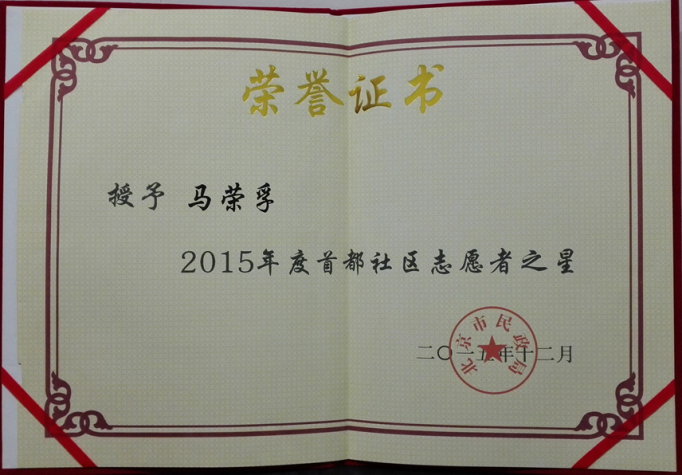 荣誉证书
授予 马荣孚
2015年度首都社区志愿者之星
北京市民政局
二〇一五年十二月